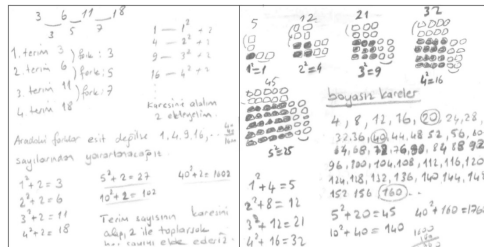 3 6 11 18
3 5 7
1. terim 3
2. terim 6
3. terim 11
4. terim 18
) fark : 3
) fark : 5
) fark : 7
1 — 1² + 2
4 — 2² + 2
9 — 3² + 2
16 — 4² + 2
Karesini alalım
2 ekleyelim.
Aradaki farklar eşit değilse 1, 4, 9, 16, ..
sayılarından yararlanacağız.
1² + 2 = 3
2² + 2 = 6
3² + 2 = 11
4² + 2 = 18
5² + 2 = 27
10² + 2 = 102
40² + 2 = 1602
Terim sayısının karesini
alıp, 2 ile toplarsak
her sayıyı elde ederiz.
5 12 21 32
1² = 1
2² = 4
3² = 9
4² = 16
45
5² = 25
boyasız kareler
4, 8, 12, 16, 20, 24, 28,
32, 36, 40, 44, 48 52, 56, 60
64, 68, 72, 76, 80, 84 88 92
96, 100, 104, 108, 112, 116, 120
124, 128, 132, 136, 140 144, 148
152 156 160
1² + 4 = 5
2² + 8 = 12
3² + 12 = 21
4² + 16 = 32
5² + 20 = 45
10² + 40 = 140
40² + 160 = 1760